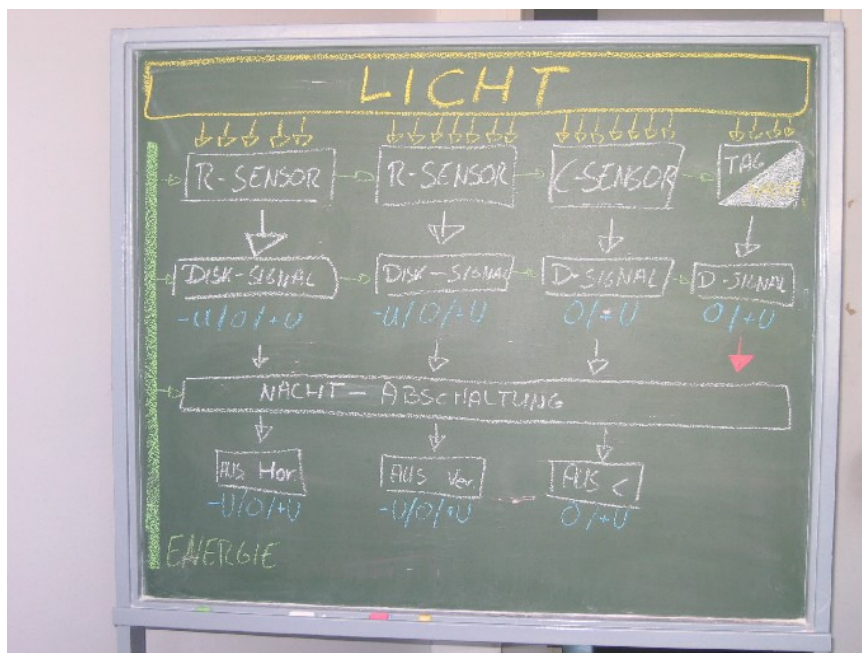 LICHT
R-SENSOR R-SENSOR C-SENSOR TAG
DISK-SIGNAL DISK-SIGNAL D-SIGNAL D-SIGNAL
-U/0/+U -U/0/+U 0/+U 0/+U
NACHT-ABSCHALTUNG
AUS Hor. AUS Ver. AUS C
-U/0/+U -U/0/+U 0/+U
ENERGIE